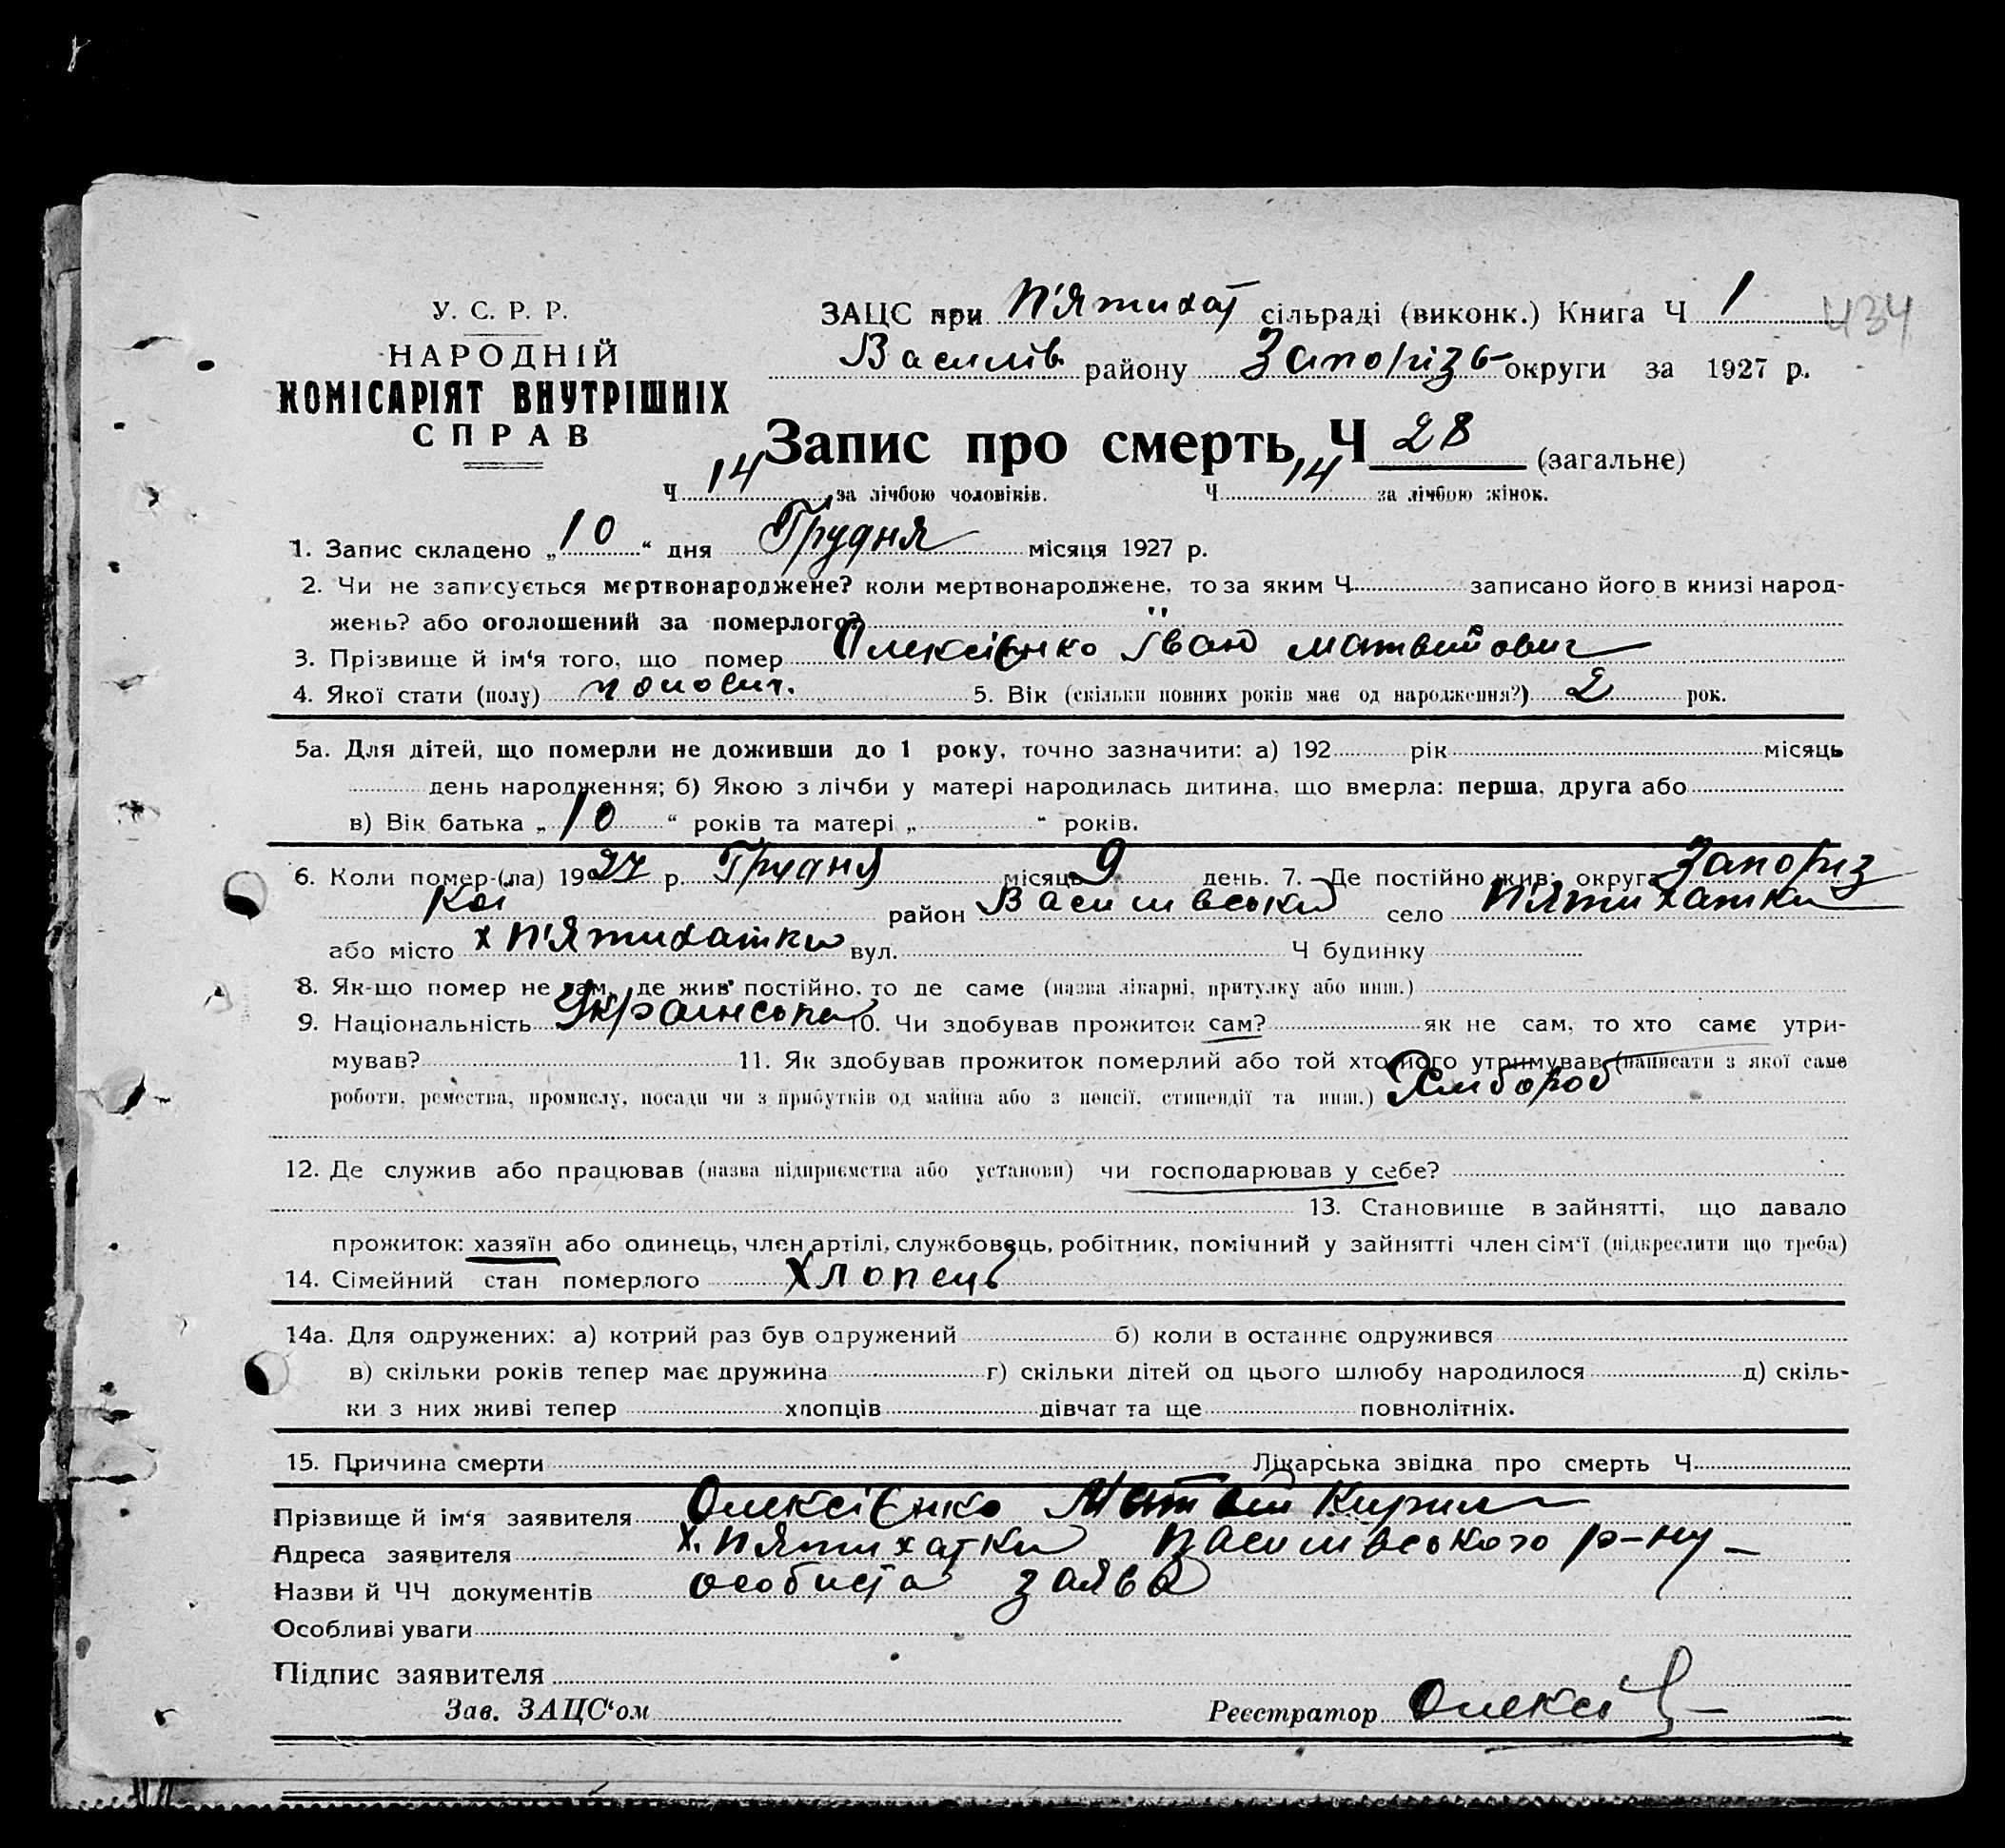 У. С. Р. Р.
НАРОДНІЙ
КОМІСАРІЯТ ВНУТРІШНІХ
СПРАВ
ЗАЦС при П'Ятихат сільраді (виконк.) Книга Ч 1 434
Василів району Запорізь округи за 1927 р.
Запис про смерть Ч 28 (загальне)
Ч 14 за лічбою чоловіків. Ч 14 за лічбою жінок.
1. Запис складено „10“ дня Грудня місяця 1927 р.
2. Чи не записується мертвонароджене? коли мертвонароджене, то за яким Ч записано його в книзі народ-
жень? або оголошений за померлого? "
3. Прізвище й ім‘я того, що помер Олексієнко Іван Матвійович
4. Якої стати (полу) чоловіч. 5. Вік (скільки повних років має од народження?) 2 рок.
5а. Для дітей, що померли не доживши до 1 року, точно зазначити: а) 192 рік місяць
день народження; б) Якою з лічби у матері народилась дитина, що вмерла: перша, друга або
в) Вік батька „10“ років та матері „ “ років.
6. Коли помер-(ла) 1927 р. Грудня місяць 9 день. 7. Де постійно жив: округа Запоріз
кої район Васили вський село Пяти хатки
або місто х П'Ятихатки вул. Ч будинку
8. Як-що помер не там, де жив постійно, то де саме (назва лікарні, притулку або инш.)
9. Національність Українська 10. Чи здобував прожиток сам? як не сам, то хто саме утри-
мував? 11. Як здобував прожиток померлий або той хто його утримував (написати з якої саме
роботи, ремества, промислу, посади чи з прибутків од майна або з пенсії, стипендії та инш.) Хлібороб
12. Де служив або працював (назва підприємства або установи) чи господарював у себе?
13. Становище в зайнятті, що давало
прожиток: хазяїн або одинець, член артілі, службовець, робітник, помічний у зайнятті член сім‘ї (підкреслити що треба)
14. Сімейний стан померлого Хлопець
14а. Для одружених: а) котрий раз був одружений б) коли в останнє одружився
в) скільки років тепер має дружина г) скільки дітей од цього шлюбу народилося д) скіль-
ки з них живі тепер хлопців дівчат та ще повнолітніх.
15. Причина смерти Лікарська звідка про смерть Ч
Прізвище й ім‘я заявителя Олексієнко Матвій Кирил
Адреса заявителя х. Пятихатки Василівського р-ну
Назви й ЧЧ документів особиста заява
Особливі уваги
Підпис заявителя
Зав. ЗАЦС‘ом Реєстратор Олексі